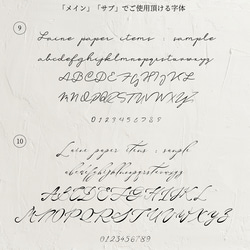 「メイン」「サブ」でご使用頂ける字体
9
Laine paper items : sample
abcdefghijklmnopqrstuvwxyz
ABCDEFGHIJKL
MNOPQRSTUVWXYZ
0123456789
10
Laine paper items : sample
abcdefghijklmnopqrstuvwxyz
ABCDEFGHIJKL
MNOPQRSTUVWXYZ
0123456789